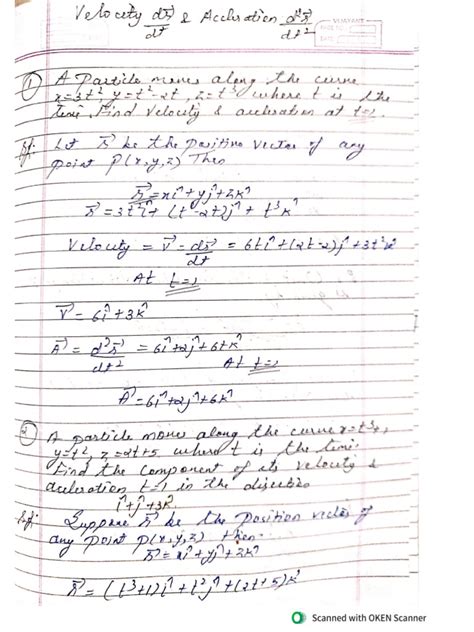 Velocity dr⃗/dt & Accleration d²r⃗/dt²
① A Particle moves along the curve
x=3t² y=t²-2t, z=t³ where t is the
time find velocity & accleration at t=1.
Sol: Let r⃗ be the position vector of any
point P(x,y,z) Then
r⃗ = xî+yĵ+zk̂
r⃗ = 3t²î+(t²-2t)ĵ+t³k̂
Velocity = v⃗ = dr⃗/dt = 6tî+(2t-2)ĵ+3t²k̂
At t=1
V⃗ = 6î+3k̂
A⃗ = d²r⃗/dt² = 6î+2ĵ+6tk̂
At t=1
A⃗ = 6î+2ĵ+6k̂
② A particle moves along the curve
y=t², z=2t+5 where t is the time.
Find the component of its velocity &
accleration t=1 in the
î+ĵ+3k̂
Sol: Suppose r⃗ be the position vector of
any point P(x,y,z) then
r⃗ = xî+yĵ+zk̂
r⃗ = (t³+1)î+t²ĵ+(2t+5)k̂
Scanned with OKEN Scanner